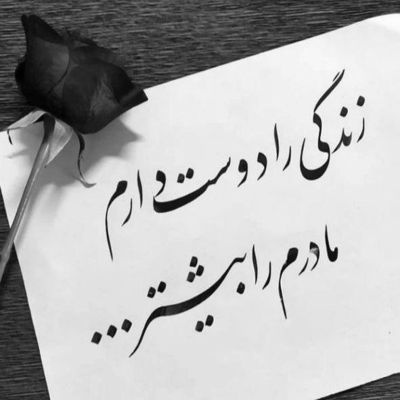 زندگی را دوست دارم
مادرم را بیشتر...